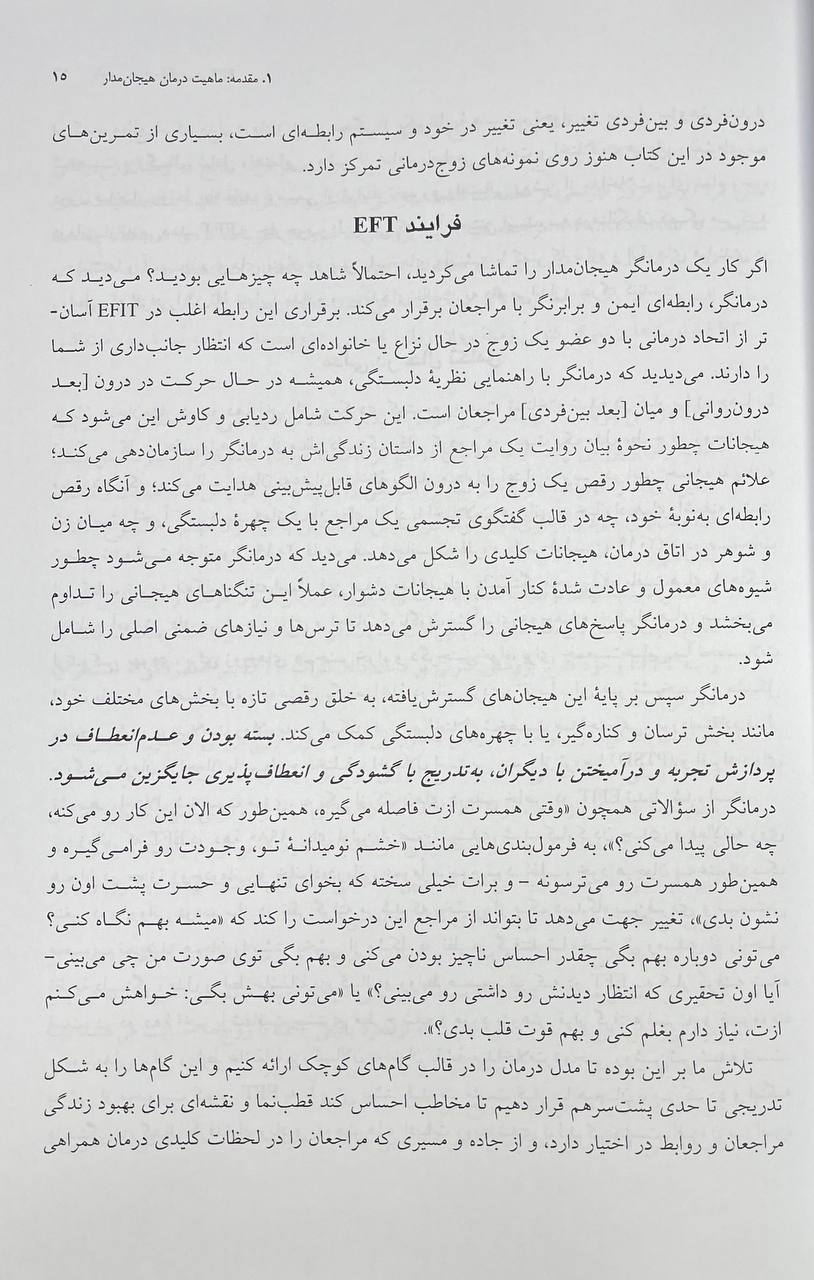 ۱. مقدمه: ماهیت درمان هیجان‌مدار ۱۵
درون‌فردی و بین‌فردی تغییر، یعنی تغییر در خود و سیستم رابطه‌ای است، بسیاری از تمرین‌های
موجود در این کتاب هنوز روی نمونه‌های زوج‌درمانی تمرکز دارد.
فرایند EFT
اگر کار یک درمانگر هیجان‌مدار را تماشا می‌کردید، احتمالاً شاهد چه چیزهایی بودید؟ می‌دید که
درمانگر، رابطه‌ای ایمن و برابرنگر با مراجعان برقرار می‌کند. برقراری این رابطه اغلب در EFIT آسان-
تر از اتحاد درمانی با دو عضو یک زوج در حال نزاع یا خانواده‌ای است که انتظار جانب‌داری از شما
را دارند. می‌دیدید که درمانگر با راهنمایی نظریهٔ دلبستگی، همیشه در حال حرکت در درون [بعد
درون‌روانی] و میان [بعد بین‌فردی] مراجعان است. این حرکت شامل ردیابی و کاوش این می‌شود که
هیجانات چطور نحوهٔ بیان روایت یک مراجع از داستان زندگی‌اش به درمانگر را سازمان‌دهی می‌کند؛
علائم هیجانی چطور رقص یک زوج را به درون الگوهای قابل‌پیش‌بینی هدایت می‌کند؛ و آنگاه رقص
رابطه‌ای به‌نوبهٔ خود، چه در قالب گفتگوی تجسمی یک مراجع با یک چهرهٔ دلبستگی، و چه میان زن
و شوهر در اتاق درمان، هیجانات کلیدی را شکل می‌دهد. می‌دید که درمانگر متوجه می‌شود چطور
شیوه‌های معمول و عادت شدهٔ کنار آمدن با هیجانات دشوار، عملاً این تنگناهای هیجانی را تداوم
می‌بخشد و درمانگر پاسخ‌های هیجانی را گسترش می‌دهد تا ترس‌ها و نیازهای ضمنی اصلی را شامل
شود.
درمانگر سپس بر پایهٔ این هیجان‌های گسترش‌یافته، به خلق رقصی تازه با بخش‌های مختلف خود،
مانند بخش ترسان و کناره‌گیر، یا با چهره‌های دلبستگی کمک می‌کند. بسته بودن و عدم‌انعطاف در
پردازش تجربه و درآمیختن با دیگران، به‌تدریج با گشودگی و انعطاف‌پذیری جایگزین می‌شود.
درمانگر از سؤالاتی همچون «وقتی همسرت ازت فاصله می‌گیره، همین‌طور که الان این کار رو می‌کنه،
چه حالی پیدا می‌کنی؟»، به فرمول‌بندی‌هایی مانند «خشم نومیدانهٔ تو، وجودت رو فرامی‌گیره و
همین‌طور همسرت رو می‌ترسونه - و برات خیلی سخته که بخوای تنهایی و حسرت پشت اون رو
نشون بدی»، تغییر جهت می‌دهد تا بتواند از مراجع این درخواست را کند که «میشه بهم نگاه کنی؟
می‌تونی دوباره بهم بگی چقدر احساس ناچیز بودن می‌کنی و بهم بگی توی صورت من چی می‌بینی-
آیا اون تحقیری که انتظار دیدنش رو داشتی رو می‌بینی؟» یا «می‌تونی بهش بگی: خواهش می‌کنم
ازت، نیاز دارم بغلم کنی و بهم قوت قلب بدی؟».
تلاش ما بر این بوده تا مدل درمان را در قالب گام‌های کوچک ارائه کنیم و این گام‌ها را به شکل
تدریجی تا حدی پشت‌سرهم قرار دهیم تا مخاطب احساس کند قطب‌نما و نقشه‌ای برای بهبود زندگی
مراجعان و روابط در اختیار دارد، و از جاده و مسیری که مراجعان را در لحظات کلیدی درمان همراهی